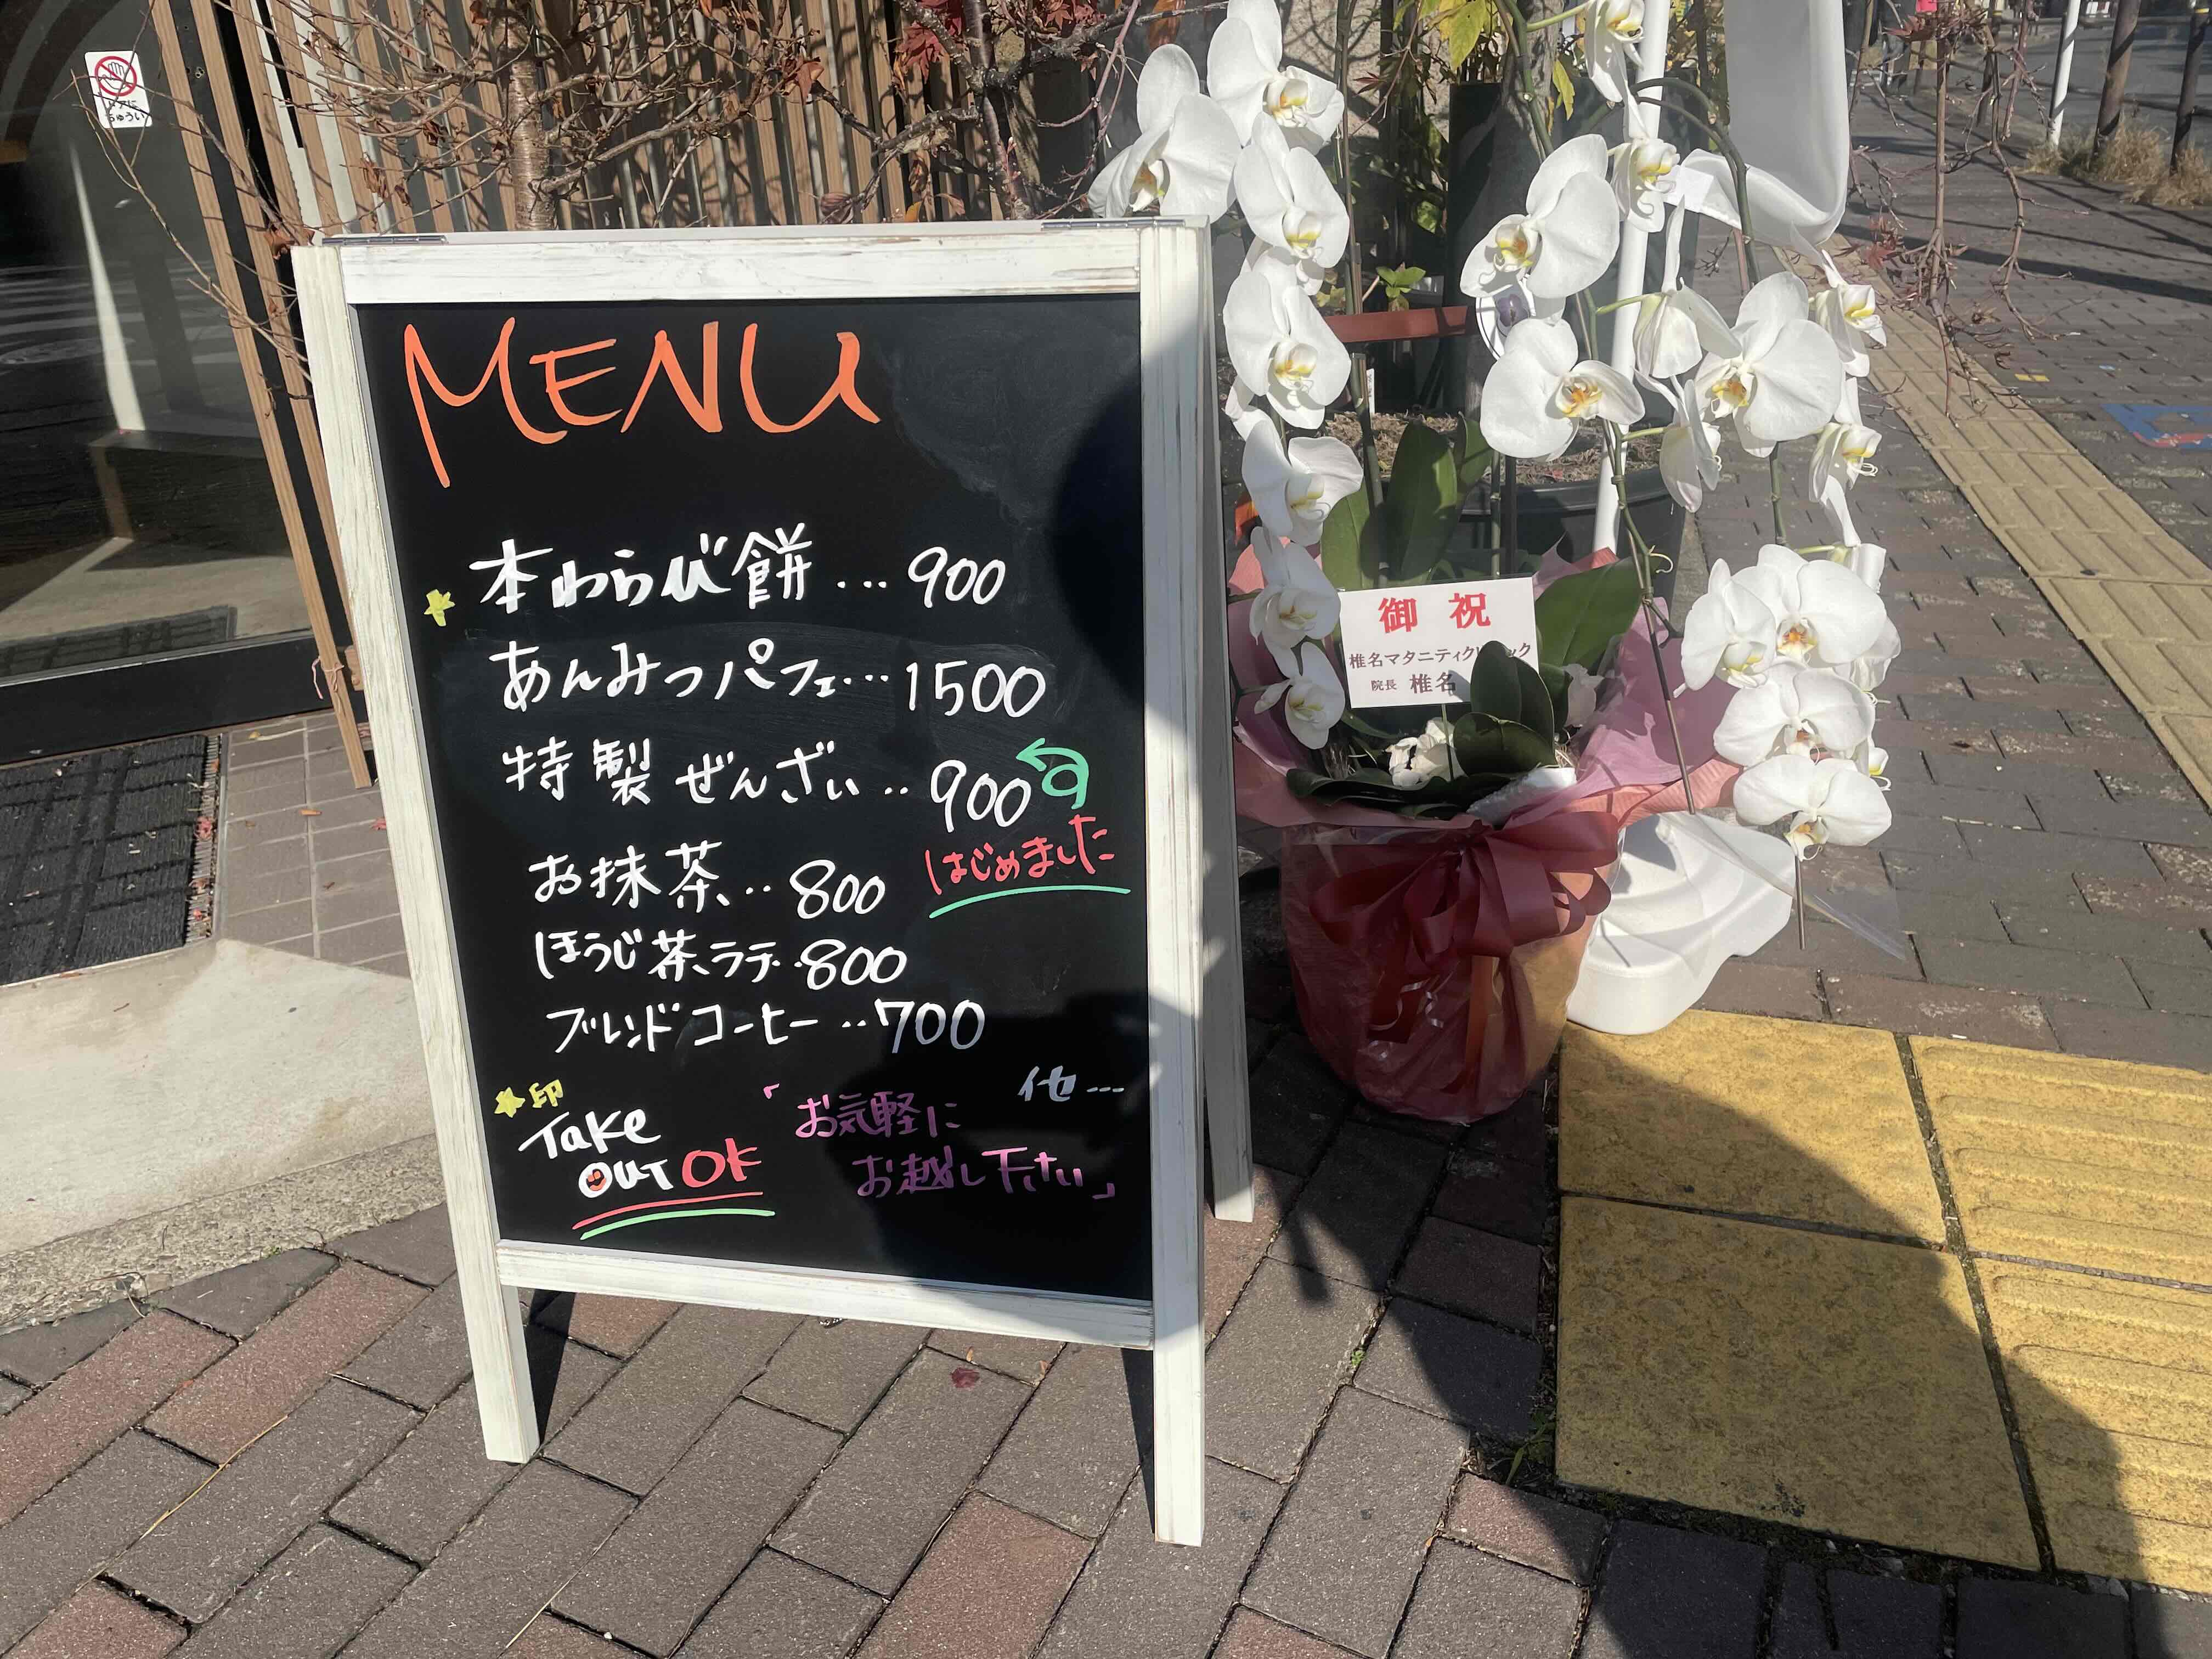 ドアに
ちゅうい
MENU
★本わらび餅…900
あんみつパフェ…1500
特製ぜんざい‥900
はじめました
お抹茶‥800
ほうじ茶ラテ‥800
ブレンドコーヒー‥700
他…
★印
Take
OUT OK
「お気軽に
お越し下さい」
御祝
椎名マタニティクリニック
院長 椎名